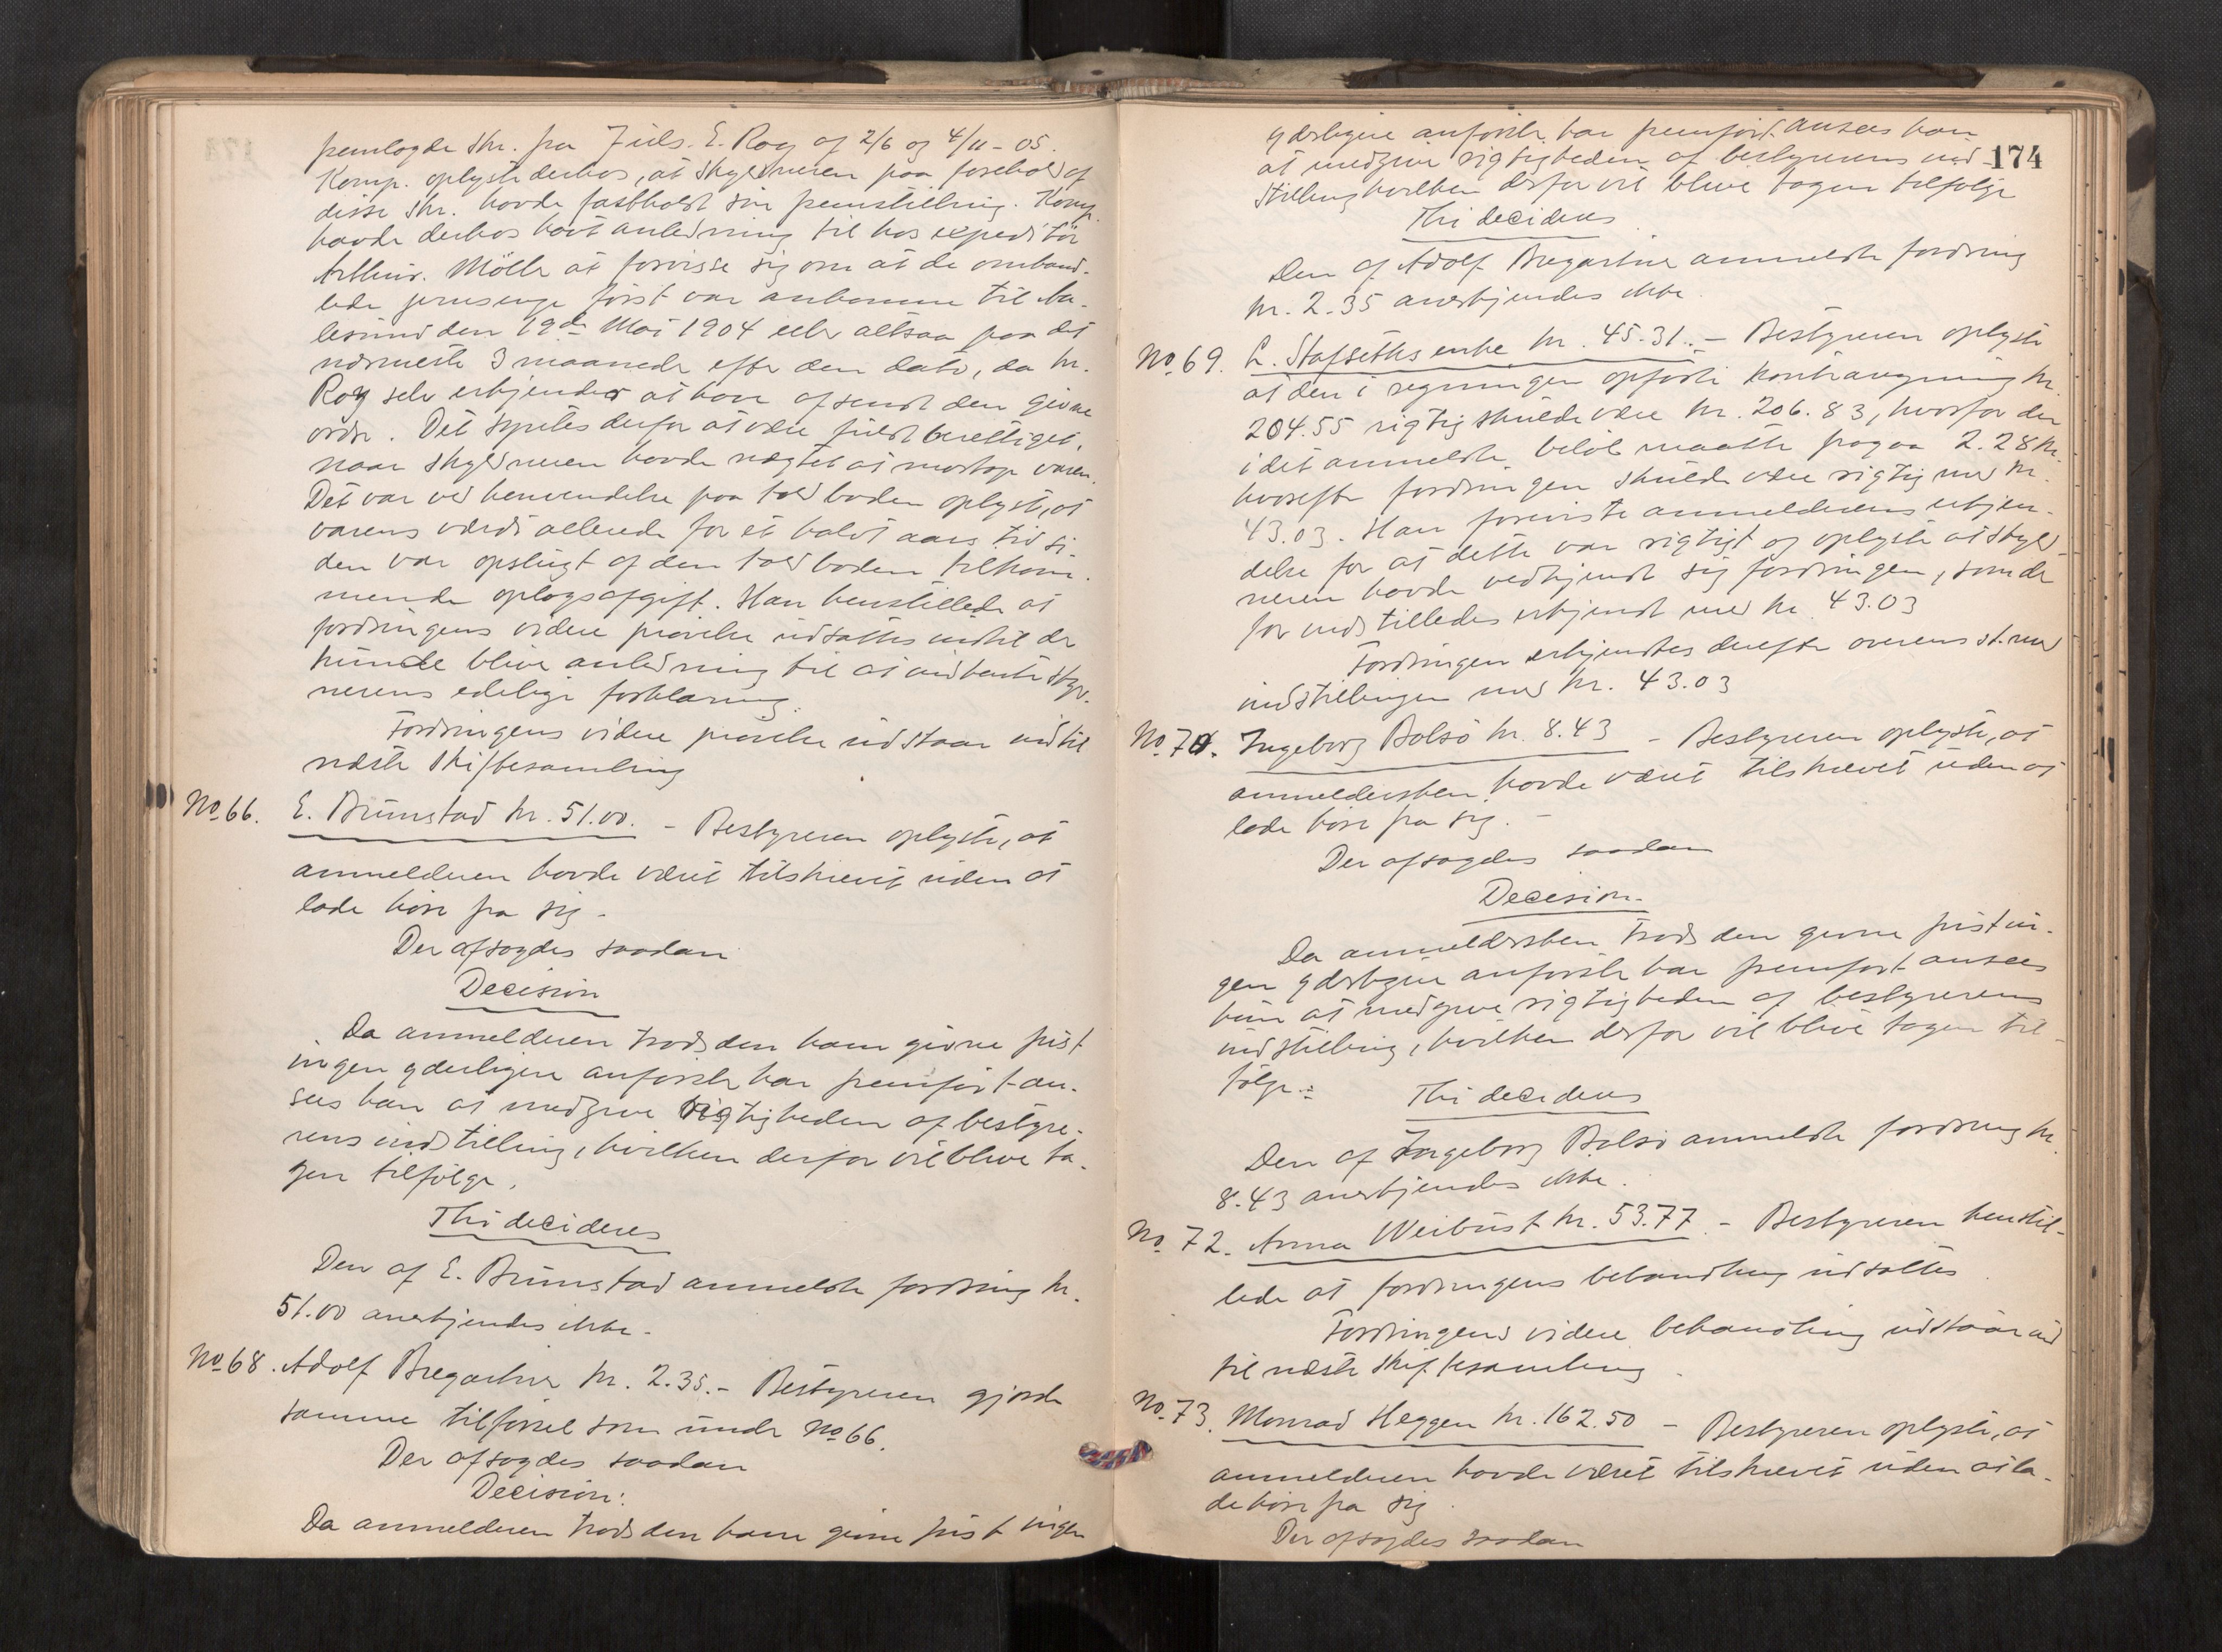 fremlagde skr. fra Juls. E. Roy af 2/6 og 4/11 - 05.
Komp. oplyste derhos, at skyldneren paa forehold af
disse skr. havde fastholdt sin fremstilling. Komp.
havde derhos havt anledning til hos expeditör
Arthur. Möller at forvisse sig om at de omhand-
lede jernsenge först var ankomne til Aa-
lesund den 19de Mai 1904 eller altsaa paa det
nærmeste 3 maaneder efter den dato, da hr.
Roy selv erkjender at have afsendt den givne
ordre. Det syntes derfor at være fuldt berettiget,
naar skyldneren havde nægtet at mottage varen.
Det var ved henvendelse paa toldboden oplyst, at
varens værdi allerede for et halvt aars tid si-
den var opslugt af den toldboden tilkom-
mende oplagsafgift. Han henstillede at
fordringens videre prövelse udsattes indtil der
kunde blive anledning til at indhente skyld-
nerens edelige forklaring.
Fordringens videre prövelse udstaar indtil
næste skiftesamling
No. 66. E. Brunstad kr. 51.00. - Bestyreren oplyste, at
anmelderen havde været tilskrevet uden at
lade höre fra sig -
Der afsagdes saadan
Decision
Da anmelderen trods den ham givne frist
ingen yderligere anförsler har fremfört an-
sees han at medgive rigtigheden af bestyre-
rens indstilling, hvilken derfor vil blive ta-
gen tilfölge.
Thi decideres
Den af E. Brunstad anmeldte fordring kr.
51.00 anerkjendes ikke -
No. 68. Adolf Bregartner kr. 2.35. - Bestyreren gjorde
samme tilförsel som under No 66.
Der afsagdes saadan
Decision:
Da anmelderen trods den ham givne frist ingen
174
yderligere anförsler har fremfört ansees han
at medgive rigtigheden af bestyrerens ind-
stilling hvilken derfor vil blive tagen tilfölge
Thi decideres
Den af Adolf Bregartner anmeldte fordring
kr. 2.35 anerkjendes ikke.
No. 69. L. Stafseths enke kr. 45.31. - Bestyreren oplyste
at den i regningen opförte kontraregning kr.
204.55 rigtig skulde være kr. 206.83, hvorfor der
i det anmeldte belöb maatte fragaa 2.28 kr.
hvorefter fordringen skulde være rigtig med kr.
43.03. Han foreviste anmelderens erkjen-
delse for at dette var rigtigt og oplyste at skyld-
neren havde vedkjendt sig fordringen, som der-
for indstilledes erkjendt med kr. 43.03
Fordringen erkjendtes derefter overensst. med
indstillingen med kr. 43.03
No. 70. Ingeborg Bolsö kr. 8.43 - Bestyreren oplyste, at
anmeldersken havde været tilskrevet uden at
lade höre fra sig. -
Der afsagdes saadan
Decision.
Da anmeldersken trods den givne frist in-
gen yderligere anförsler har fremfört ansees
hun at medgive rigtigheden af bestyrerens
indstilling, hvilken derfor vil blive tagen til-
fölge.:
Thi decideres
Den af Ingeborg Bolsö anmeldte fordring kr.
8.43 anerkjendes ikke.
No. 72. Anna Weibust kr. 53.77. - Bestyreren henstil-
lede at fordringens behandling udsattes
Fordringens videre behandling udstaar ind
til næste skiftesamling.
No. 73. Monrad Heggen kr. 162.50 - Bestyreren oplyste, at
anmelderen havde været tilskrevet uden at la-
de höre fra sig.
Der afsagdes saadan